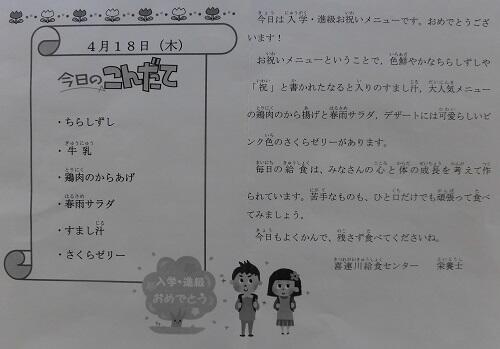 4月18日（木）
今日のこんだて
・ちらしずし
・牛乳
・鶏肉のからあげ
・春雨サラダ
・すまし汁
・さくらゼリー
入学・進級
おめでとう
今日は入学・進級お祝いメニューです。おめでとうござ
います！
お祝いメニューということで，色鮮やかなちらしずしや
「祝」と書かれたなると入りのすまし汁，大人気メニュー
の鶏肉のから揚げと春雨サラダ，デザートには可愛らしいピ
ンク色のさくらゼリーがあります。
毎日の給食は、みなさんの心と体の成長を考えて作
られています。苦手なものも、ひと口だけでも頑張って食べ
てみましょう。
今日もよくかんで、残さず食べてくださいね。
喜連川給食センター　栄養士